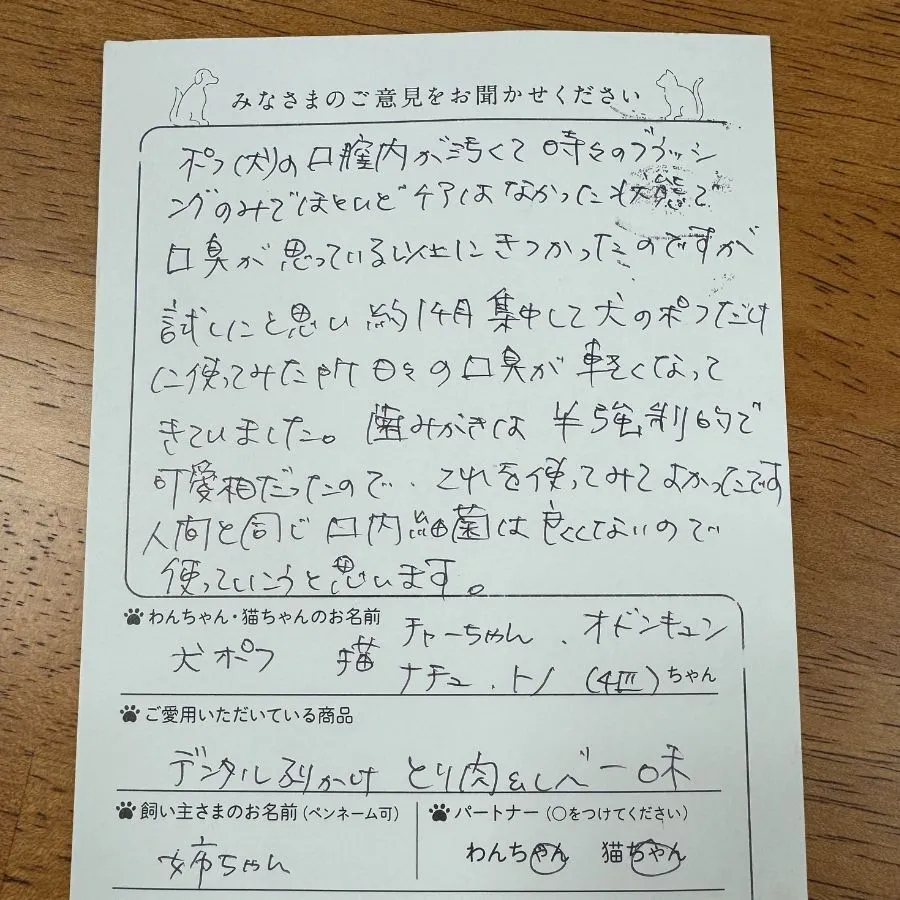 みなさまのご意見をお聞かせください
ポフ(犬)の口腔内が汚くて時々のブラッシ
ングのみでほとんどケアはなかった状態で
口臭が思っている以上にきつかったのですが
試しにと思い約1ヶ月集中して犬のポフだけ
に使ってみた所日々の口臭が軽くなって
きていました。歯みがきは半強制的で
可愛相だったので、これを使ってみてよかったです
人間と同じ口内細菌は良くしないので
使っていこうと思います。
わんちゃん・猫ちゃんのお名前
チャーちゃん、オドンキュン
犬 ポフ 猫
ナチュ、トノ (4匹) ちゃん
ご愛用いただいている商品
デンタルふりかけ とり肉&レバー味
飼い主さまのお名前(ペンネーム可)
姉ちゃん
パートナー(○をつけてください)
わんちゃん 猫ちゃん